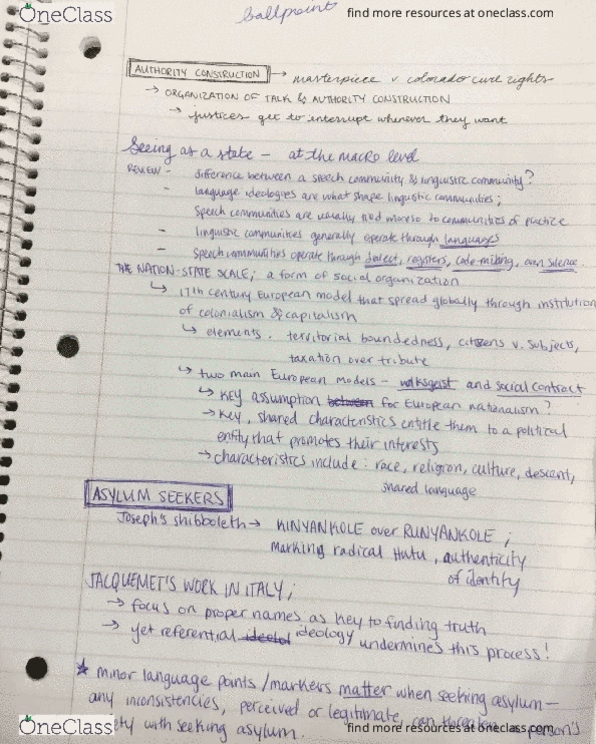 OneClass
ballpoint
find more resources at oneclass.com
AUTHORITY CONSTRUCTION → masterpiece v colorado civil rights
→ ORGANIZATION OF TALK & AUTHORITY CONSTRUCTION
→ justices get to interrupt whenever they want
Seeing as a state – at the macro level
REVIEW – difference between a speech community & linguistic community?
– language ideologies are what shape linguistic communities;
speech communities are usually tied more so to communities of practice
– linguistic communities generally operate through languages
– speech communities operate through dialect, registers, code-mixing, even silence.
THE NATION-STATE SCALE; a form of social organization
↳ 17th century European model that spread globally through institution
of colonialism & capitalism
↳ elements. territorial boundedness, citizens v. subjects,
taxation over tribute
↳ two main European models – volksgeist and social contract
↳ key assumption between for European nationalism?
→ key, shared characteristics entitle them to a political
entity that promotes their interests
→ characteristics include: race, religion, culture, descent,
shared language
ASYLUM SEEKERS
Joseph's shibboleth → KINYANKOLE over RUNYANKOLE;
marking radical Hutu, authenticity
of identity
JACQUEMET'S WORK IN ITALY;
→ focus on proper names as key to finding truth
→ yet referential ideology undermines this process!
★ minor language points/markers matter when seeking asylum –
any inconsistencies, perceived or legitimate, can threaten person's
with seeking asylum.
OneClass
find more resources at oneclass.com